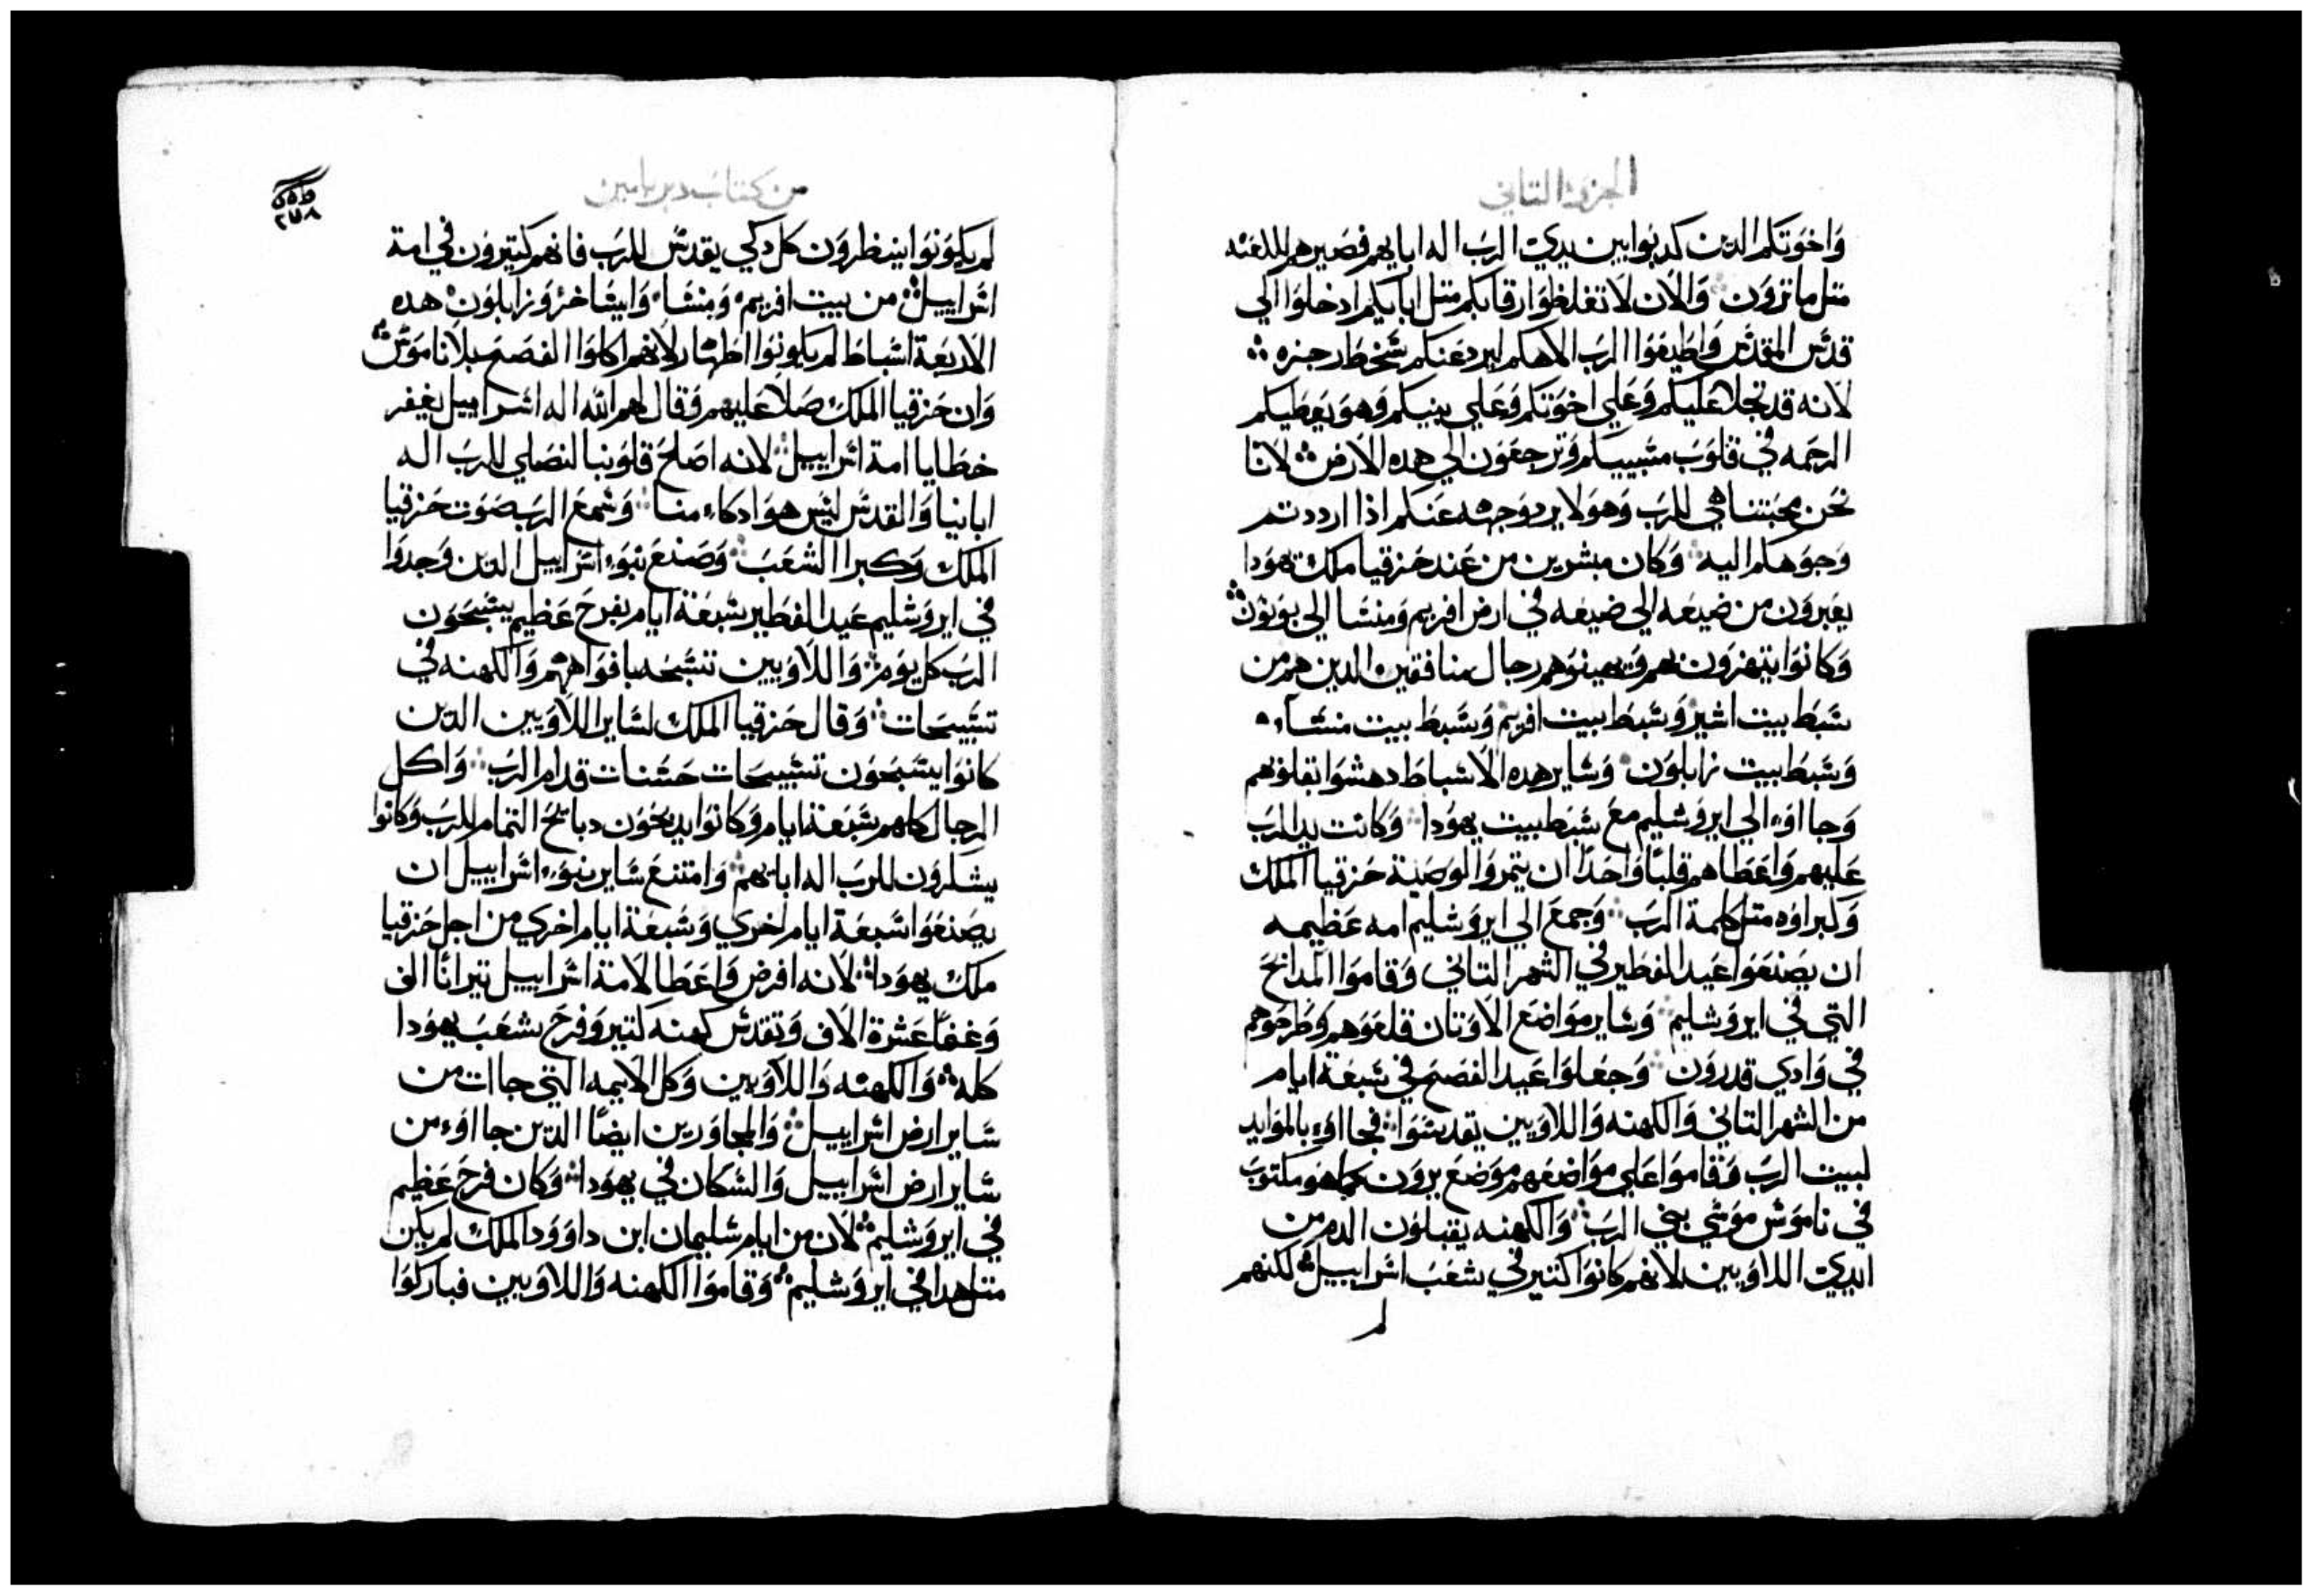 الجزو التاني
وَاخوَتكم الدين كدبوا بين يدي الرب اله ابايهم فصيرهم للدغنه
متل ما ترون وَالان لا تغلظوا رقابكم متل ابايكم ادخلوا الي
قدس المقدس وَاطيعوا الرب الاهكم ليرد عنكم سخط رجزه
لانه قد تجلا عليكم وَعلي اخوتكم وَعلي بنيكم وَهو يعطيكم
الرحمه في قلوب مسبييكم وَترجعون الي هده الارض لاننا
نحن محبتنا هي للرب وَهو لا يرد وجهه عنكم ادا ارددتم
وجوهكم اليه وَكان مبشرين من عند حزقيا ملك يهودا
يعبرون من ضيعه الي ضيعه في ارض افريم وَمنسا الي بونون
وَكانوا يتهزون بهم وَيهينوهم رجال منافقين الدين هم من
سبط بيت اشير وَسبط بيت افريم وَسبط بيت منسا
وَسبط بيت زابلون وَساير هده الاسباط دهشوا بقلوبهم
وَجااوء الي ايروشليم مع سبط بيت يهودا وَكانت يد الرب
عليهم وَاعطاهم قلبًا وَاحدًا ان يتموا الوصية حزقيا الملك
وَكبراوه متل كلمة الرب وَجمع الي ايروشليم امه عظيمه
ان يصنعوا عيد الفطير في الشهر التاني وَقاموا المدابح
التي في ايروشليم وَساير مواضع الاوتان قلعوهم وَطرحوهم
في وَادي قدرون وَجعلوا عيد الفصح في سبعة ايام
من الشهر التاني وَالكهنه وَاللاويين تقدسوا فجااوء بالموايد
لبيت الرب وَقاموا علي مواضعهم موضع يرون كما هو مكتوب
في ناموس موسي بني الرب وَالكهنه يقبلون الدم من
ايدي اللاويين لانهم كانوا كتير في شعب اسراييل لكنهم
لم
من كتاب دبريامين
٢٧٨
لم يكونوا ينظرون كل دكي يقدس للرب فانهم كتيرون في امة
اسراييل من بيت افريم وَمنسا وَايساخر وَزابلون هده
الاربعة اسباط لم يكونوا اطهار لانهم اكلوا الفصح بلا ناموس
وَان حزقيا الملك صلا عليهم وَقال لهم الله اله اسراييل يغفر
خطايا امة اسراييل لانه اصلح قلوبنا لنصلي للرب اله
ابانيا وَالقدس ليس هوا دكاء منا وَسمع الرب صوت حزقيا
الملك وَكبرا الشعب وَصنع بنوء اسراييل الدين وَجدوا
في ايروشليم عيد الفطير سبعة ايام بفرح عظيم يسبحون
الرب كل يوم وَاللاويين تسبحه بافواههم وَالكهنه في
تسبيحات وَقال حزقيا الملك لساير اللاويين الدين
كانوا يسبحون تسبيحات حسنات قدام الرب وَاكل
الرجال كلهم سبعة ايام وَكانوا يدبحون دبايح التمام للرب وَكانوا
يشكرون للرب اله ابايهم وَامتنع ساير بنوء اسراييل ان
يصنعوا سبعة ايام اخري وَسبعة ايام اخري من اجل حزقيا
ملك يهودا لانه افرض وَاعطا لامة اسراييل تيرانًا الف
وَغنمًا عشرة الاف وَتقدس كهنه كتير وَفرح شعب يهودا
كله وَالكهنه وَاللاويين وَكل الايمه التي جاات من
ساير ارض اسراييل وَالمجاورين ايضًا الدين جااوء من
ساير ارض اسراييل وَالسكان في يهودا وَكان فرح عظيم
في ايروشليم لان من ايام سليمان ابن داوود الملك لم يكن
متل هدا في ايروشليم وَقاموا الكهنه وَاللاويين فباركوا